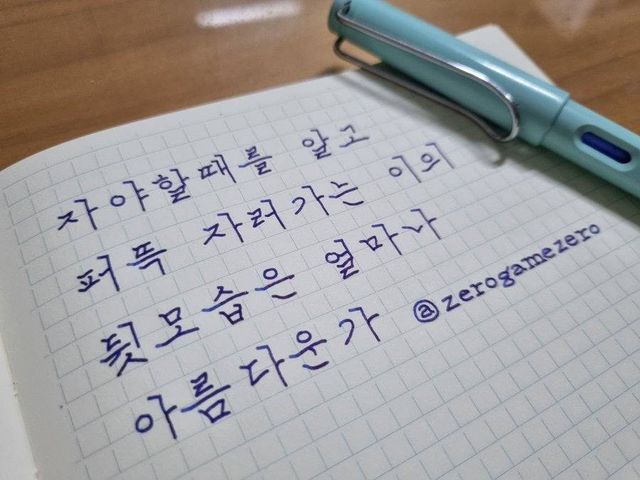 자야할때를 알고
퍼뜩 자러가는 이의
뒷모습은 얼마나
아름다운가 @zerogamezero